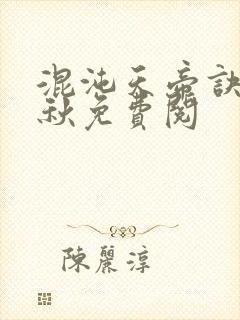 混沌天帝訣
秋免費閱
陳麗淳